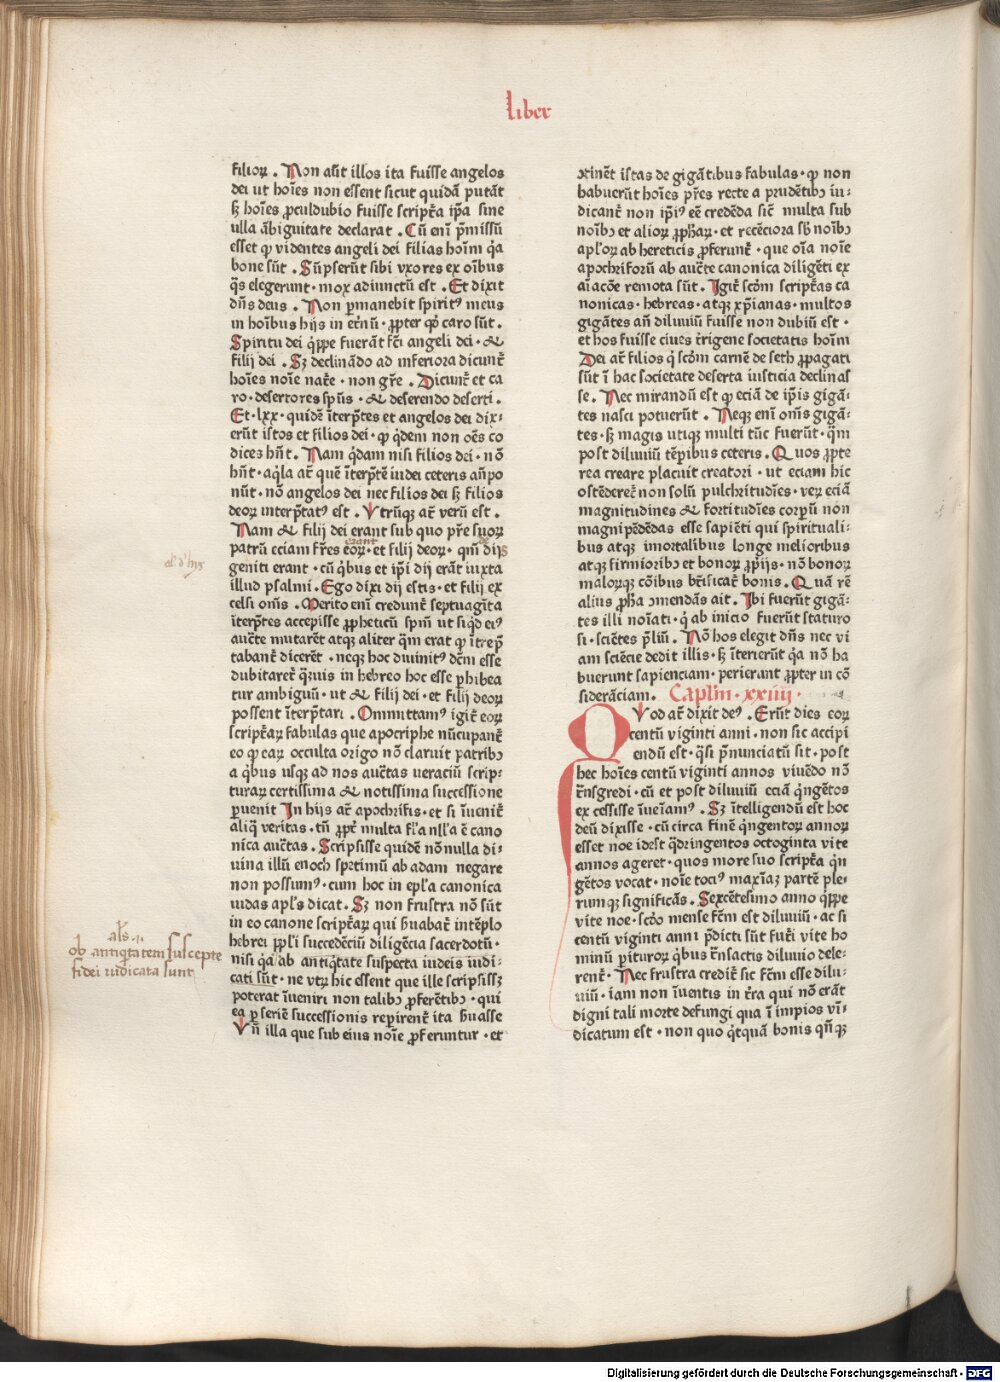 liber
filioꝝ . Non aūt illos ita fuisse angelos
dei ut hoīes non essent sicut quidā putāt
sꝫ hoīes ꝓculdubio fuisse scriptᷓa ip̄a sine
ulla ābiguitate declarat . Cū enī p̄missū
esset ꝙ videntes angeli dei filias hoīm q̄a
bone sūt . Sūpserūt sibi vxores ex oībus
q̄s elegerunt · mox adiunctū est . Et dixit
dn̄s deus . Non ꝑmanebit spiritꝰ meus
in hoībus hijs in et̄nū · ꝓpter qd̄ caro sūt .
Spiritu dei q̄ppe fuerāt fc̄i angeli dei · &
filij dei . Sꝫ declināndo ad inferiora dicunt̄
hoīes noīe nat̄e · non gr̄e . Dicunt̄ et ca
ro · desertores spūs · & deserendo deserti .
Et · lxx · quidē īterp̄tes et angelos dei dix-
erūt istos et filios dei · ꝙ q̄dem non oēs co
dices hn̄t . Nam q̄dam nisi filios dei · nō
hn̄t · aq̄la at̄ quē īterp̄tē iudei ceteris an̄po
nūt · nō angelos dei nec filios dei sꝫ filios
deoꝝ interp̄tatꝰ est . Vtrūqꝫ at̄ verū est .
Nam & filij dei erant sub quo pr̄e suoꝝ
patrū eciam fr̄es eoꝝ · et filij deoꝝ · qm̄ dijs
erant
de
al' d' hijs
geniti erant · cū q̄bus et ip̄i dij erāt iuxta
illud psalmi . Ego dixi dij estis · et filij ex
celsi om̄s . Merito enī credunt̄ septuagīta
īterp̄tes accepisse ꝓpheticū spm̄ ut siq̄d eiꝰ
auct̄e mutarēt atqꝫ aliter q̄m erat ꝙ ītrep̄
tabant̄ dicerēt · neqꝫ hoc diuinitꝰ dc̄m esse
dubitaret̄ q̄uis in hebreo hoc esse ꝑhibea
tur ambiguū · ut & filij dei · et filij deoꝝ
possent īterp̄tari . Ommittamꝰ igit̄ eoꝝ
scriptᷓaꝝ fabulas que apocriphe nūcupant̄
eo ꝙ eaꝝ occulta origo nō claruit patribꝫ
a q̄bus usqꝫ ad nos auct̄as ueraciū scrip-
turaꝝ certissima & notissima successione
ꝑuenit In hijs at̄ apochrifis · et si īuenit̄
aliq̄ veritas · tn̄ ꝓpt̄ multa fl̄a nll̄a ē cano
nica auct̄as . Scripsisse quidē nōnulla di-
uina illū enoch sp̄timū ab adam negare
non possumꝰ · cum hoc in epl̄a canonica
iudas apl̄s dicat . Sꝫ non frustra nō sūt
in eo canone scriptᷓaꝝ qui s̄uabat̄ intēplo
hebrei ppl̄i succedēciū diligēcia sacerdotū ·
nisi q̄a ab antiq̄tate suspecta iudeis iudi-
cati sūt · ne vtꝝ hic essent que ille scripsissꝫ
poterat īueniri non talibꝫ ꝓferētibꝫ · qui
ea ꝑ seriē successionis repirent̄ ita s̄uasse
Vn̄ illa que sub eius noīe ꝓferuntur · et
als
ob antiq̄tatem suscepte
fidei iudicata sunt
ↄtinēt istas de gigātibus fabulas · ꝙ non
habuerūt hoīes pr̄es recte a prudētibꝫ iu-
dicant̄ non ip̄iꝰ eē credēda sic̄ multa sub
noībꝫ et alioꝝ ꝓphaꝝ · et recēciora sb̄ noībꝫ
apl̄oꝝ ab hereticis ꝓferunt̄ · que oīa noīe
apochriforū ab auct̄e canonica diligēti ex
aīacōe remota sūt . Igit̄ scd̄m scriptᷓas ca
nonicas · hebreas · atqꝫ xp̄ianas · multos
gigātes an̄ diluuiū fuisse non dubiū est ·
et hos fuisse ciues t̄rigene societatis hoīm
Dei at̄ filios q̄ scd̄m carnē de seth ꝓpagati
sūt ī hac societate deserta iusticia declinas
se . Nec mirandū est ꝙ eciā de ip̄is gigā-
tes nasci potuerūt . Neqꝫ enī om̄s gigā-
tes · sꝫ magis utiqꝫ multi tūc fuerūt · q̄m
post diluuiū tēpibus ceteris . Quos ꝓpte
rea creare placuit creatori · ut eciam hic
ostēderet̄ non solū pulchritudīes · veꝝ eciā
magnitudines & fortitudīes corpū non
magnipēdēdas esse sapiēti qui spirituali-
bus atqꝫ imortalibus longe melioribus
atqꝫ firmioribꝫ et bonoꝝ ꝓpijs · nō bonoꝝ
maloꝝqꝫ cōibus bt̄ificat̄ bonis . Quā rē
alius ꝓpha ↄmendās ait . Ibi fuerūt gigā-
tes illi noīati · q̄ ab inicio fuerūt staturo
si · sciētes p̄liū . Nō hos elegit dn̄s nec vi
am sciēcie dedit illis · sꝫ īterierūt q̄a nō ha
buerunt sapienciam · perierunt ꝓpter in cō
siderāciam . Caplm̄ · xxiiij ·
Qvod at̄ dixit deꝰ . Erūt dies eoꝝ
centū viginti anni · non sic accipi
endū est · q̄si p̄nunciatū sit · post
hec hoīes centū viginti annos viuēdo nō
t̄nsgredi · cū et post diluuiū eciā q̄ngētos
ex cessisse īueīamꝰ . Sꝫ ītelligendū est hoc
deū dixisse · cū circa finē q̄ngentoꝝ annoꝝ
esset noe idest q̄dringentos octoginta vite
annos ageret · quos more suo scriptᷓa q̄n
gētos vocat · noīe tociꝰ maxīaꝫ partē ple-
rumqꝫ significās . Sexcētesimo anno q̄ppe
vite noe · scd̄o mense fc̄m est diluuiū · ac si
centū viginti anni p̄dicti sūt fut̄i vite ho
minū ꝑituroꝝ q̄bus t̄nsactis diluuio dele-
rent̄ . Nec frustra credit̄ sic fc̄m esse dilu-
uiū · iam non īuentis in t̄ra qui nō erāt
digni tali morte defungi qua ī impios vī-
dicatum est · non quo q̄tquā bonis qn̄qꝫ
Digitalisierung gefördert durch die Deutsche Forschungsgemeinschaft - DFG